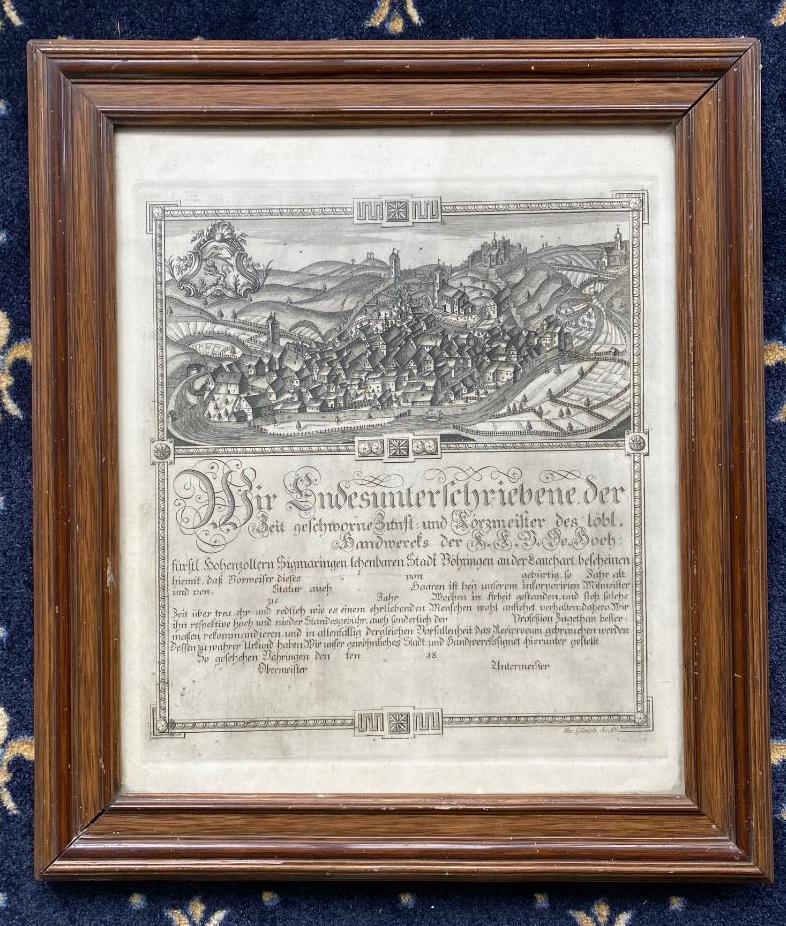 Wir Endesunterschriebene der
Zeit geschworne Zunft- und Kerzmeister des löbl.
Handwercks der
fürstl. Hohenzollern Sigmaringen lehenbaren Stadt Vöhringen an der Lauchart bescheinen
hiemit, daß Vorweiser dieses von gebürtig, so Jahr alt
und von Statur auch Haaren ist bey unserem inkorporirten Mitmeister
zu Jahr Wochen in Arbeit gestanden, und sich solche
Zeit über treu, ehr und redlich wie es einem ehrliebenden Menschen wohl anstehet verhalten, dahero Wir
ihn respektive hoch und nieder Standesgebühr, auch sonderlich der Profession Zugethan bester-
maßen rekommandiren, und in allenfällig dergleichen Vorfallenheit das Reciprocum gebrauchen werden
Dessen zu wahrer Urkund haben Wir unser gewöhnliches Stadt und Handwerckssignet hierunter gestellt
So geschehen Vöhringen den ten 18
Obermeister Untermeister